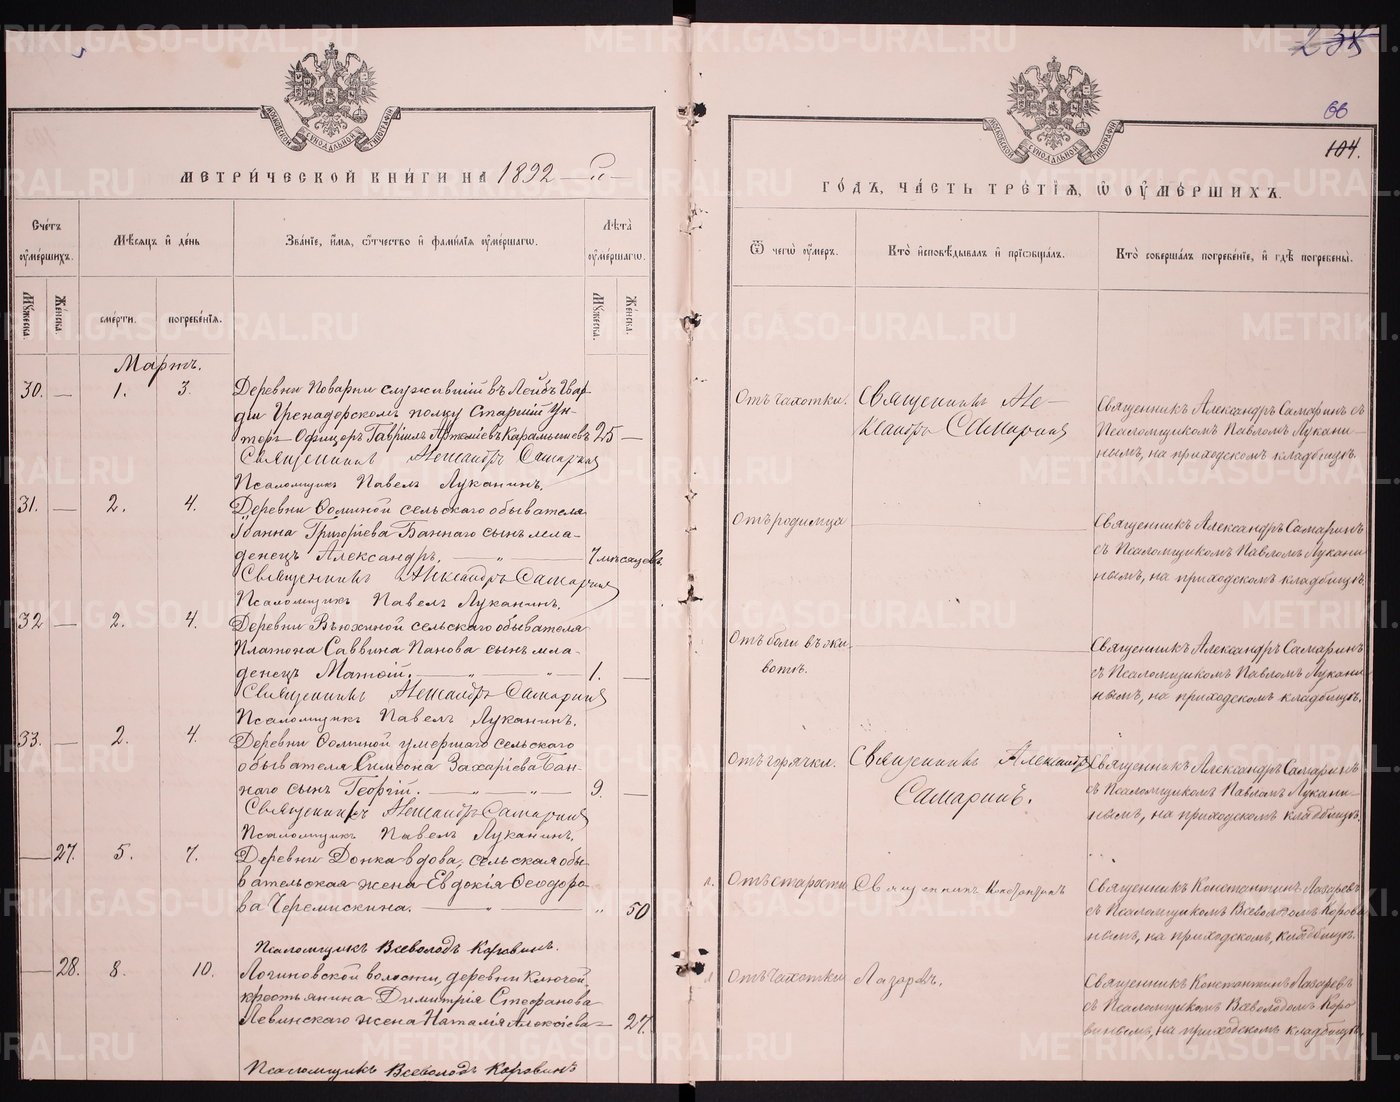 234
66
104.
МОСКОВСКОЙ СѴНОДАЛЬНОЙ ТИПОГРАФІИ
МОСКОВСКОЙ СѴНОДАЛЬНОЙ ТИПОГРАФІИ
МЕТРИ́ЧЕСКОЙ КНИ́ГИ НА 1892 – й –
ГО́ДЪ, ЧА́СТЬ ТРЕ́ТІѦ, Ѡ ОУ҆МЕ́РШИХЪ.
Сче́тъ оу҆ме́ршихъ.
Мѣ́сѧцъ и҆ де́нь
Зва́ніе, и҆́мѧ, ѻ҆́тчество и҆ фами́лїѧ оу҆ме́ршагѡ.
Лѣ́та оу҆ме́ршагѡ.
Ѿ чегѡ̀ оу҆́меръ.
Кто̀ и҆сповѣ́дывалъ и҆ прїѡбща́лъ.
Кто̀ соверша́лъ погребе́нїе, и҆ гдѣ̀ погребены̀.
Мꙋ́жеска. Же́нска.
сме́рти. погребе́нїѧ.
Мꙋ́жеска. Же́нска.
Мартъ.
30. — 1. 3. Деревни Поварни служившій въ Лейбъ Гвар-
діи Гренадерскомъ полку Старшій Ун-
теръ-Офицеръ Гавріилъ Артеміевъ Карамышевъ 25 —
Священникъ Александръ Самаринъ
Псаломщикъ Павелъ Луканинъ.
Отъ чахотки. Священникъ Але-
ксандръ Самаринъ
Священникъ Александръ Самаринъ съ
Псаломщикомъ Павломъ Лукани-
нымъ, на приходскомъ кладбищѣ.
31. — 2. 4. Деревни Соминой сельскаго обывателя
Іоанна Григоріева Баннаго сынъ мла-
денецъ Александръ. — „ — 7 мѣсяцевъ.
Священникъ Александръ Самаринъ
Псаломщикъ Павелъ Луканинъ.
Отъ родимца
Священникъ Александръ Самаринъ
съ Псаломщикомъ Павломъ Лукани
нымъ, на приходскомъ кладбищѣ.
32 — 2. 4. Деревни Вьюхиной сельскаго обывателя
Платона Саввина Панова сынъ мла-
денецъ Матѳій. — „ — „ — 1. —
Священникъ Александръ Самаринъ
Псаломщикъ Павелъ Луканинъ.
Отъ боли въ жи-
вотѣ.
Священникъ Александръ Самаринъ
съ Псаломщикомъ Павломъ Лукани
нымъ, на приходскомъ кладбищѣ.
33. — 2. 4. Деревни Соминой умершаго сельскаго
обывателя Симеона Захаріева Бан-
наго сынъ Георгій. — „ — „ — 9. —
Священникъ Александръ Самаринъ
Псаломщикъ Павелъ Луканинъ.
Отъ горячки. Священникъ Александръ
Самаринъ.
Священникъ Александръ Самаринъ
съ Псаломщикомъ Павломъ Лукани-
нымъ, на приходскомъ кладбищѣ.
— 27. 5. 7. Деревни Донка вдова, сельская обы-
вательская жена Евдокія Ѳеодоро-
ва Черемискина. — „ — „ 50
Псаломщикъ Всеволодъ Коровинъ.
Отъ старости Священникъ Константинъ
Священникъ Константинъ Лазаревъ
съ Псаломщикомъ Всеволодомъ Корови
нымъ, на приходскомъ, кладбищѣ.
— 28. 8. 10. Логиновской волости, деревни Ключей,
крестьянина Димитрія Стефанова
Левинскаго жена Наталія Алексіева — 27.
Псаломщикъ Всеволодъ Коровинъ
Отъ чахотки Лазаревъ.
Священникъ Константинъ Лазаревъ
съ Псаломщикомъ Всеволодомъ Коро
винымъ, на приходскомъ кладбищѣ.
METRIKI.GASO-URAL.RU